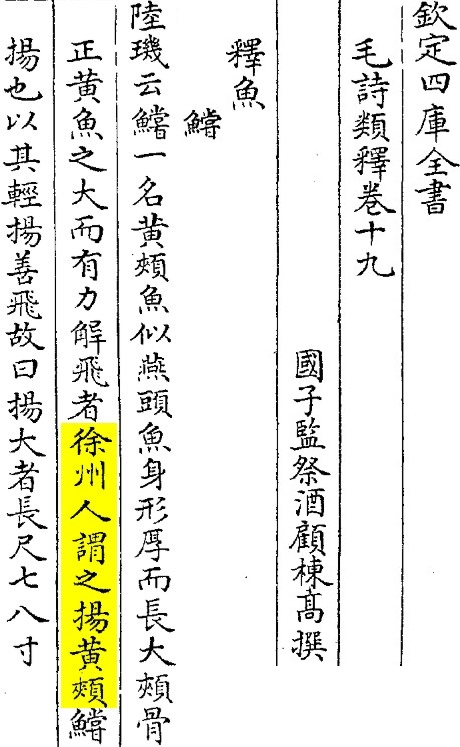 欽定四庫全書
毛詩類釋卷十九
國子監祭酒顧棟髙撰
釋魚
鱨
陸璣云鱨一名黄頰魚似燕頭魚身形厚而長大頰骨
正黄魚之大而有力解飛者徐州人謂之揚黄頰鱨
揚也以其輕揚善飛故曰揚大者長尺七八寸